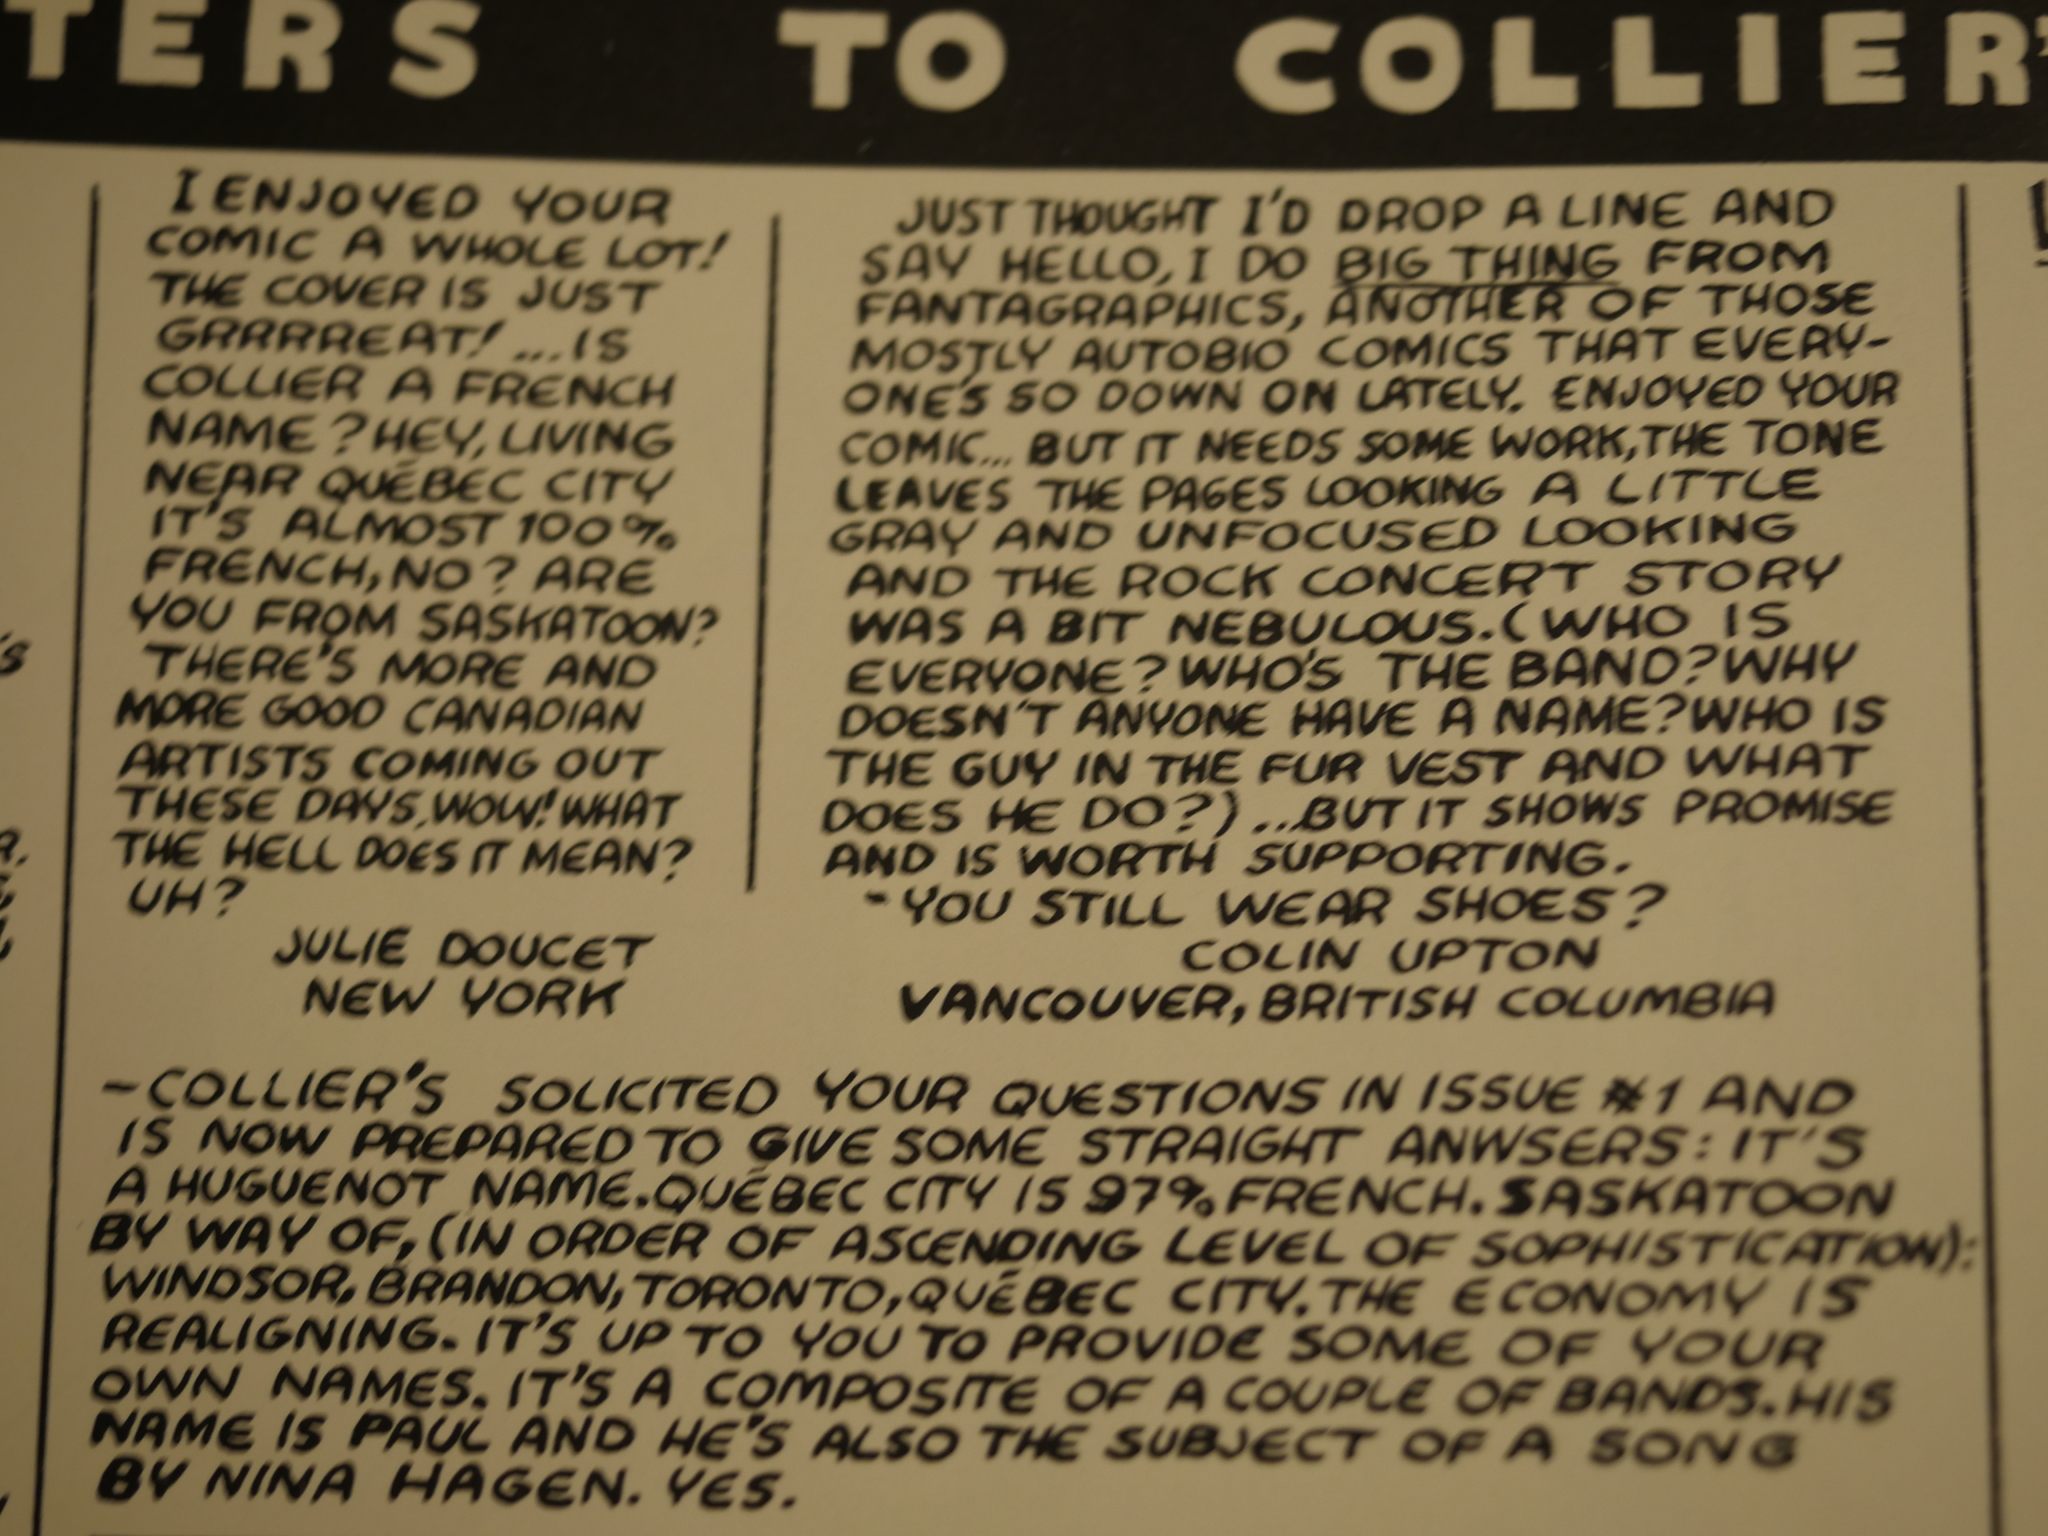 TERS TO COLLIER'
I ENJOYED YOUR
COMIC A WHOLE LOT!
THE COVER IS JUST
GRRRREAT! ... IS
COLLIER A FRENCH
NAME? HEY, LIVING
NEAR QUÉBEC CITY
IT'S ALMOST 100%
FRENCH, NO? ARE
YOU FROM SASKATOON?
THERE'S MORE AND
MORE GOOD CANADIAN
ARTISTS COMING OUT
THESE DAYS. WOW! WHAT
THE HELL DOES IT MEAN?
UH?
JULIE DOUCET
NEW YORK
JUST THOUGHT I'D DROP A LINE AND
SAY HELLO, I DO BIG THING FROM
FANTAGRAPHICS, ANOTHER OF THOSE
MOSTLY AUTOBIO COMICS THAT EVERY-
ONE'S SO DOWN ON LATELY. ENJOYED YOUR
COMIC... BUT IT NEEDS SOME WORK, THE TONE
LEAVES THE PAGES LOOKING A LITTLE
GRAY AND UNFOCUSED LOOKING
AND THE ROCK CONCERT STORY
WAS A BIT NEBULOUS. (WHO IS
EVERYONE? WHO'S THE BAND? WHY
DOESN'T ANYONE HAVE A NAME? WHO IS
THE GUY IN THE FUR VEST AND WHAT
DOES HE DO?) ...BUT IT SHOWS PROMISE
AND IS WORTH SUPPORTING.
- YOU STILL WEAR SHOES?
COLIN UPTON
VANCOUVER, BRITISH COLUMBIA
- COLLIER'S SOLICITED YOUR QUESTIONS IN ISSUE #1 AND
IS NOW PREPARED TO GIVE SOME STRAIGHT ANWSERS: IT'S
A HUGUENOT NAME. QUÉBEC CITY IS 97% FRENCH. SASKATOON
BY WAY OF, (IN ORDER OF ASCENDING LEVEL OF SOPHISTICATION):
WINDSOR, BRANDON, TORONTO, QUÉBEC CITY. THE ECONOMY IS
REALIGNING. IT'S UP TO YOU TO PROVIDE SOME OF YOUR
OWN NAMES. IT'S A COMPOSITE OF A COUPLE OF BANDS. HIS
NAME IS PAUL AND HE'S ALSO THE SUBJECT OF A SONG
BY NINA HAGEN. YES.